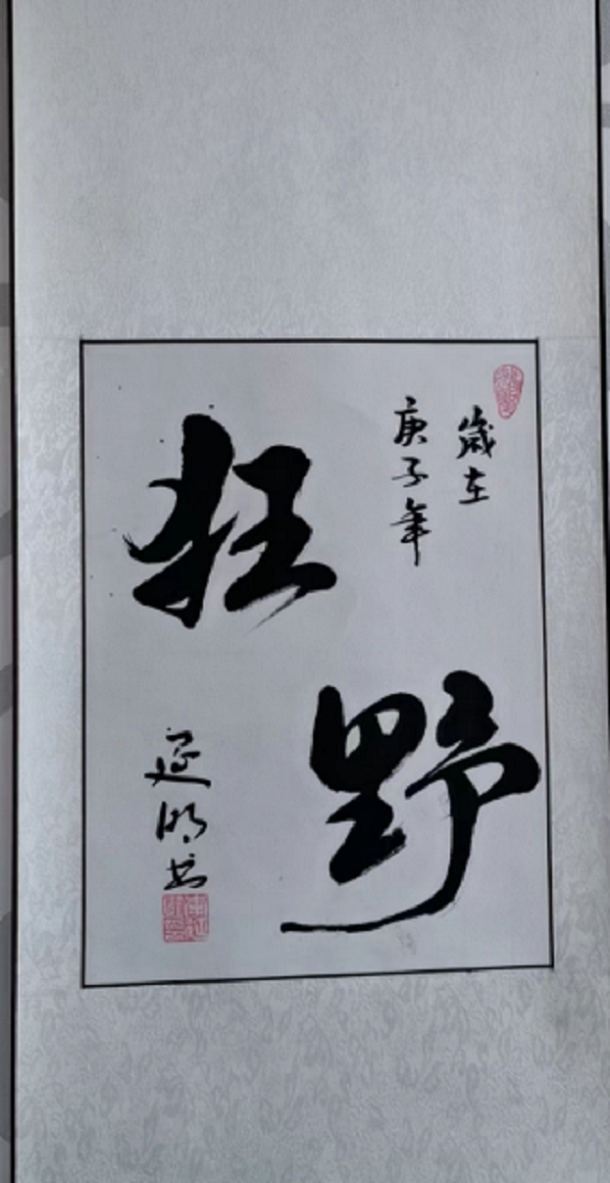 歲在
庚子年
狂野
延明书